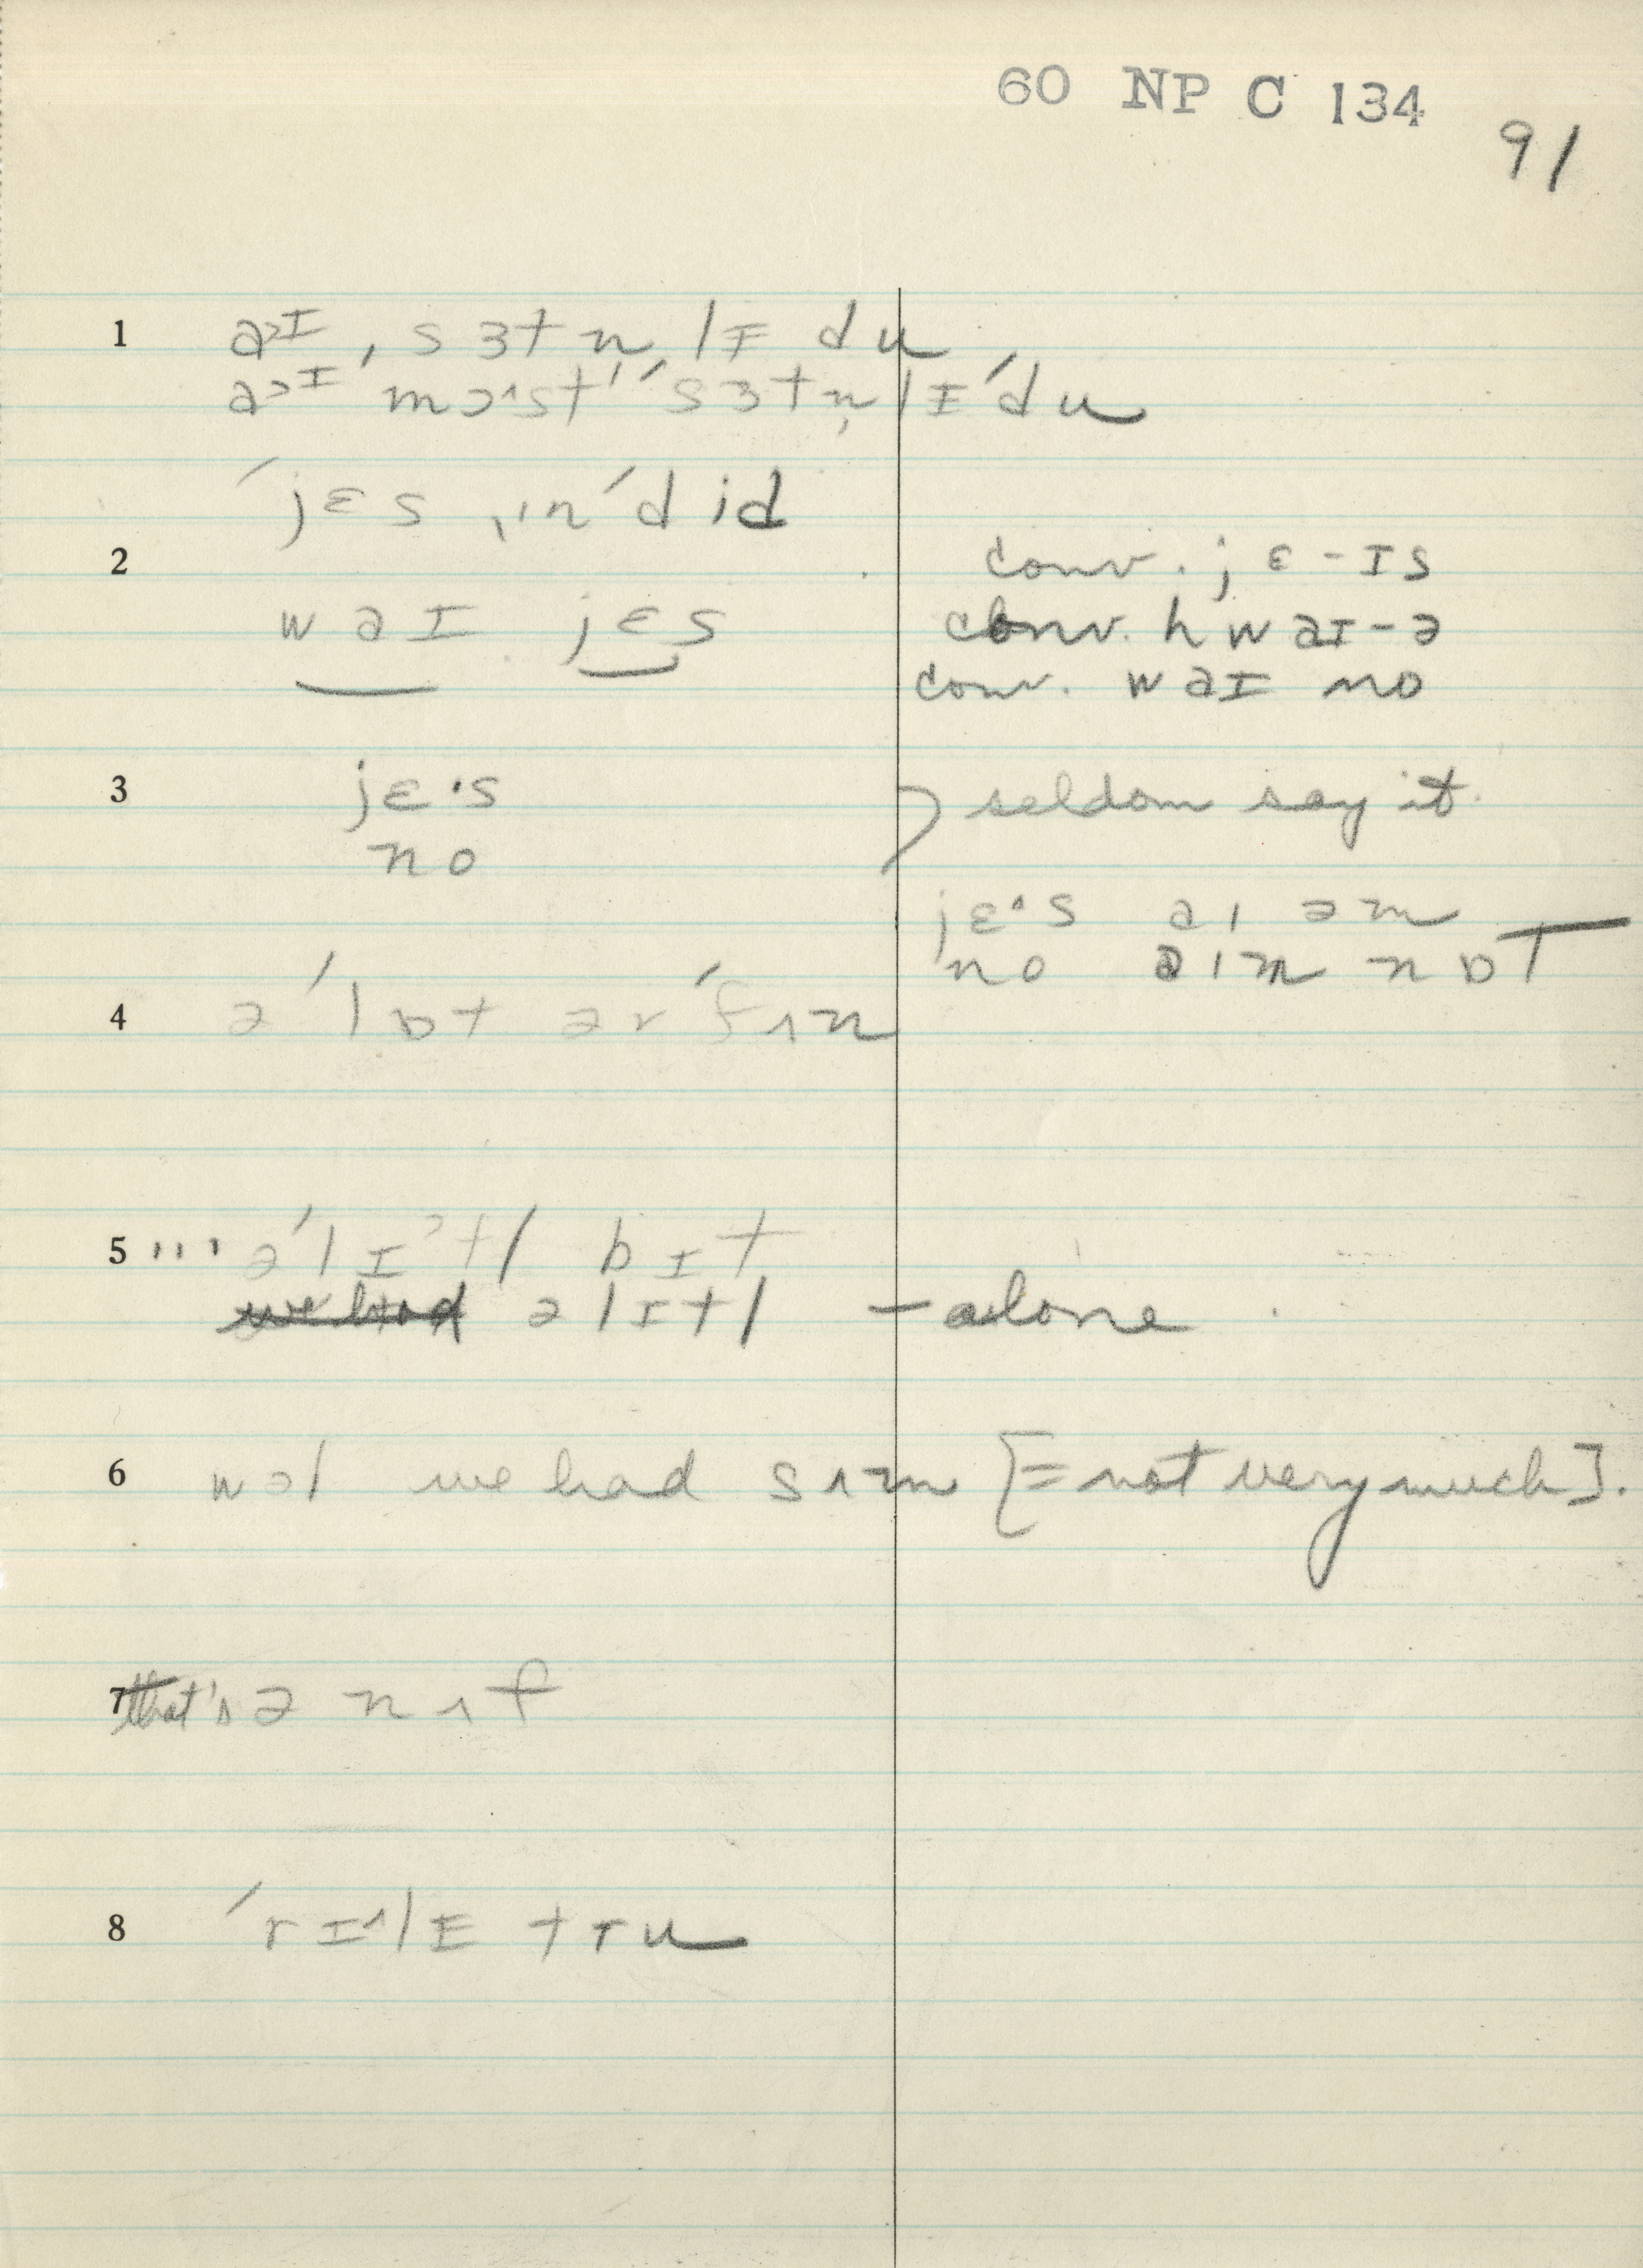 60 NP C 134
91
1 a>ɪ ˌsɜtn̩lɪ du
a>ɪ mɔ^st ˈsɜtn̩lɪ ˈdu
ˈjɛs ˈdid
2 conv. jɛ-ɪs
waɪ jɛs conv. hwaɪ-ə
conv. waɪ no
3 jɛ·s seldom say it.
no
jɛ·s aɪ əm
no aɪm nɒT
4 əˈlɒt ərˈfʌn
5 ''' əˈlɪ>tl bɪt
we had əlɪtl – alone
6 wəl we had sʌm [= not very much].
7 that's ənʌf
8 ˈrɪ^lɪ tru